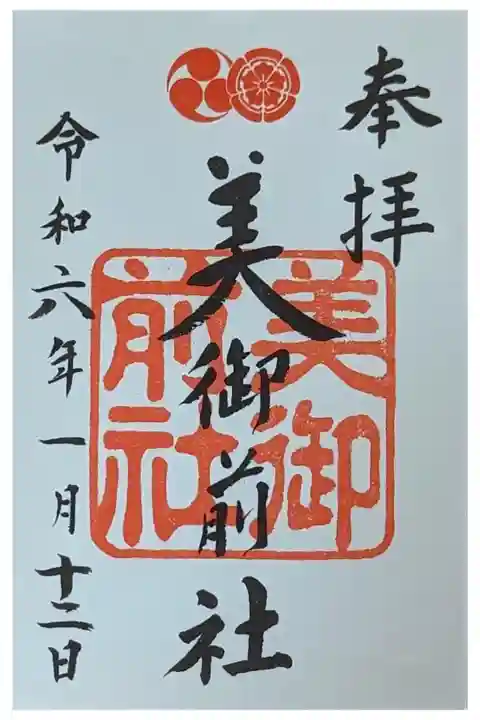 奉拝
美御前社
美御前社
令和六年一月十二日